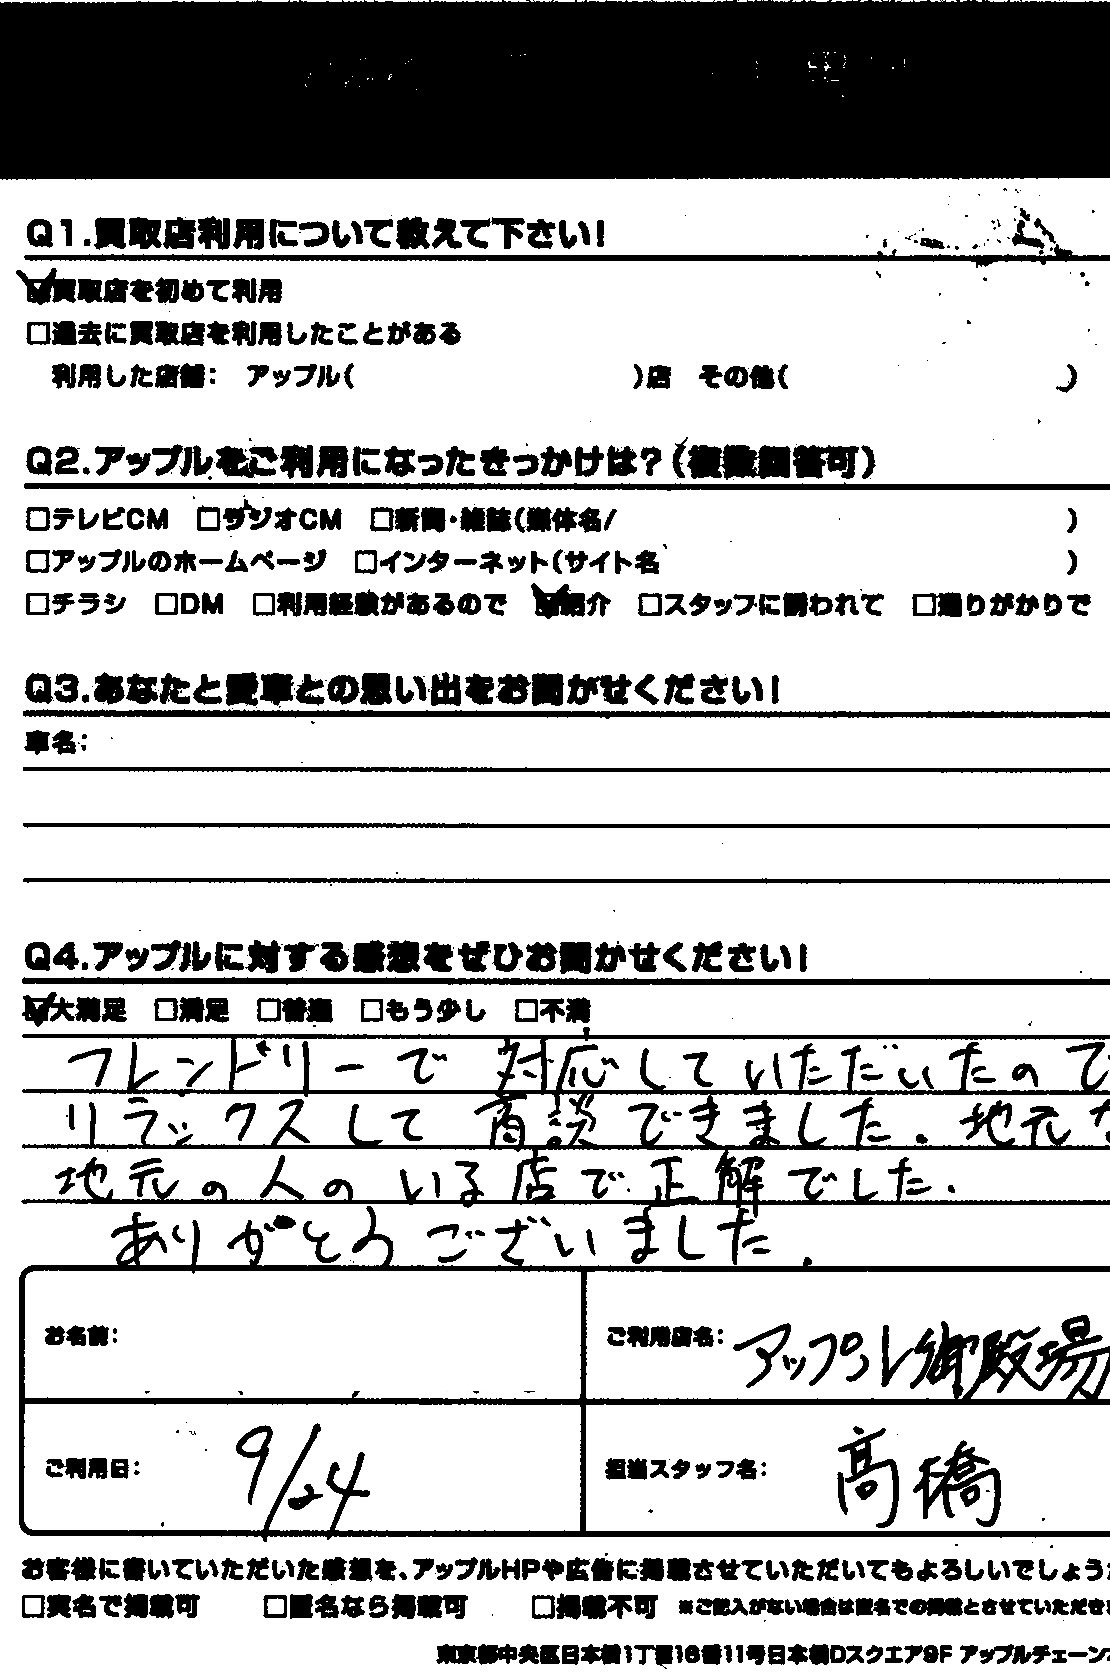 Q1.買取店利用について教えて下さい!
☑買取店を初めて利用
□過去に買取店を利用したことがある
利用した店舗： アップル( )店 その他( )
Q2.アップルをご利用になったきっかけは?(複数回答可)
□テレビCM □ラジオCM □新聞・雑誌(媒体名/ )
□アップルのホームページ □インターネット(サイト名 )
□チラシ □DM □利用経験があるので ☑紹介 □スタッフに誘われて □通りがかりで
Q3.あなたと愛車との思い出をお聞かせください!
車名：
Q4.アップルに対する感想をぜひお聞かせください!
☑大満足 □満足 □普通 □もう少し □不満
フレンドリーで対応していただいたので
リラックスして商談できました.地元な
地元の人のいる店で正解でした.
ありがとうございました.
お名前：
ご利用店名：アップル御殿場
ご利用日：9/24
担当スタッフ名：高橋
お客様に書いていただいた感想を、アップルHPや広告に掲載させていただいてもよろしいでしょうか
□実名で掲載可 □匿名なら掲載可 □掲載不可 ※ご記入がない場合は匿名での掲載とさせていただきま
東京都中央区日本橋1丁目16番11号日本橋Dスクエア9F アップルチェーン